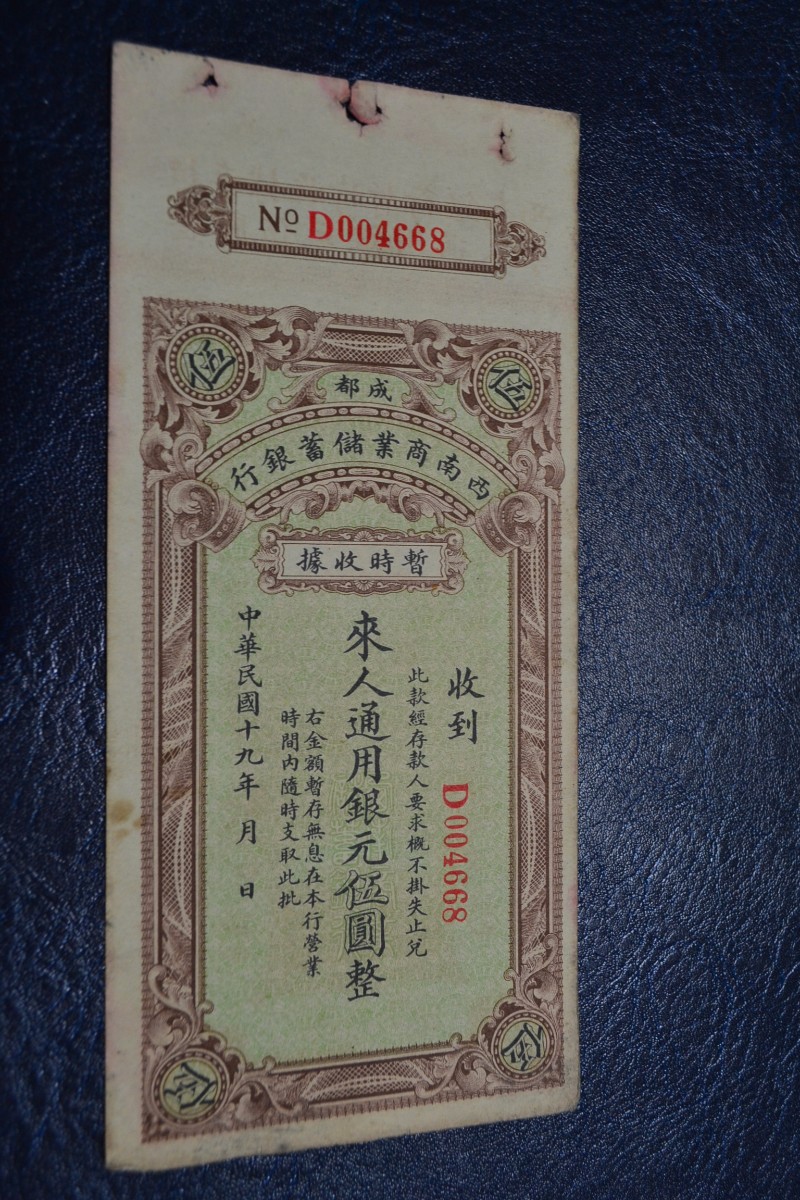 № D004668
伍 伍
成都
西南商業儲蓄銀行
暫時收據
收到 D004668
此款經存款人要求概不掛失止兌
來人通用銀元伍圓整
右金額暫存無息在本行營業
時間內隨時支取此批
中華民國十九年 月 日
伍 伍